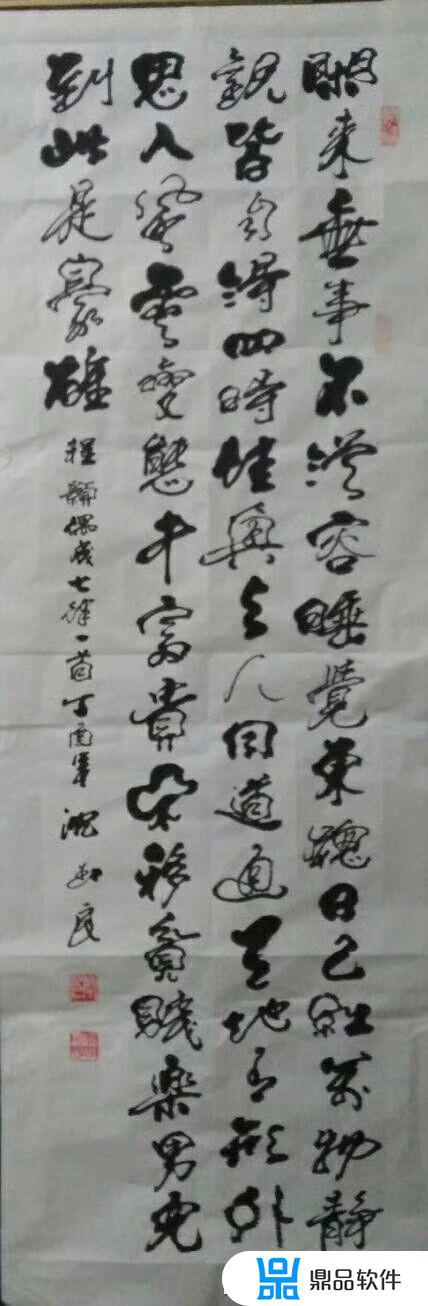 閑来無事不從容睡覺東窗日已紅萬物靜
觀皆自得四時佳興与人同道通天地有形外
思入風雲變態中富貴不移貧賤樂男兒
到此是豪雄 程顥偶成七律一首丁酉年 沈良
鼎品软件